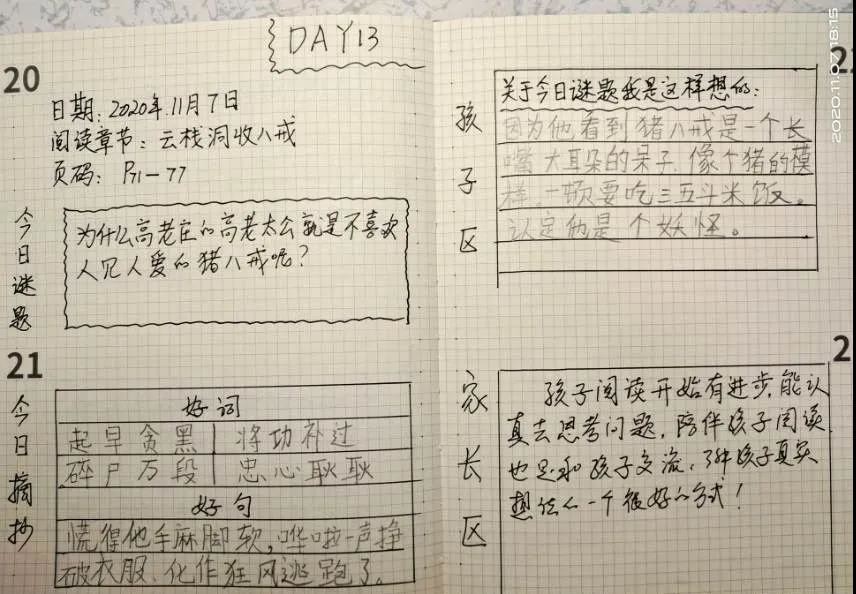 DAY13
20
日期：2020年11月7日
阅读章节：云栈洞收八戒
页码：P71-77
今日谜题
为什么高老庄的高老太公就是不喜欢
人见人爱的猪八戒呢？
21
今日摘抄
好词
起早贪黑 将功补过
碎尸万段 忠心耿耿
好句
慌得他手麻脚软，哗啦一声挣
破衣服、化作狂风逃跑了。
孩子区
关于今日谜题我是这样想的：
因为他看到猪八戒是一个长
嘴大耳朵的呆子，像个猪的模
样，一顿要吃三五斗米饭。
认定他是个妖怪。
家长区
孩子阅读开始有进步，能认
真去思考问题，陪伴孩子阅读
也是和孩子交流，了解孩子真实
想法的一个很好的方式！
2
2
2020.11.07 18:15